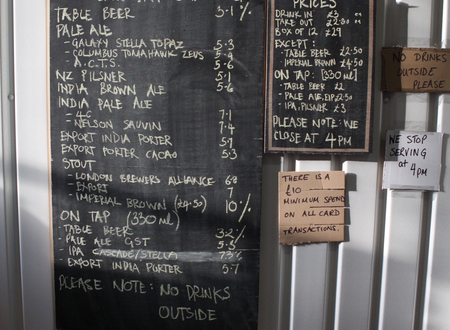 TABLE BEER 3.1%
PALE ALE
- GALAXY STELLA TOPAZ 5.3
- COLUMBUS TOMAHAWK ZEUS 5.8
- A.C.T.S. 5.6
NZ PILSNER 5.1
INDIA BROWN ALE 5.6
INDIA PALE ALE
- 4C 7.1
- NELSON SAUVIN 7.4
EXPORT INDIA PORTER 5.7
EXPORT PORTER CACAO 5.3
STOUT
- LONDON BREWERS ALLIANCE 6.8
- EXPORT 7
- IMPERIAL BROWN (£4.50) 10%
ON TAP (330ml)
- TABLE BEER 3.2%
- PALE ALE GST 5.5
- IPA CASCADE/STELLA 7.3%
- EXPORT INDIA PORTER 5.7
PLEASE NOTE: NO DRINKS
OUTSIDE
PRICES
DRINK IN £3
TAKE OUT £2.50
BOX OF 12 £29
EXCEPT:
- TABLE BEER £2.50
- IMPERIAL BROWN £4.50
ON TAP: [330ml]
- TABLE BEER £2
- PALE ALE, EIP £2.50
- IPA, PILSNER £3
PLEASE NOTE: WE
CLOSE AT 4PM
NO DRINKS
OUTSIDE
PLEASE
WE STOP
SERVING
at 4PM
THERE IS A
£10
MINIMUM SPEND
ON ALL CARD
TRANSACTIONS.